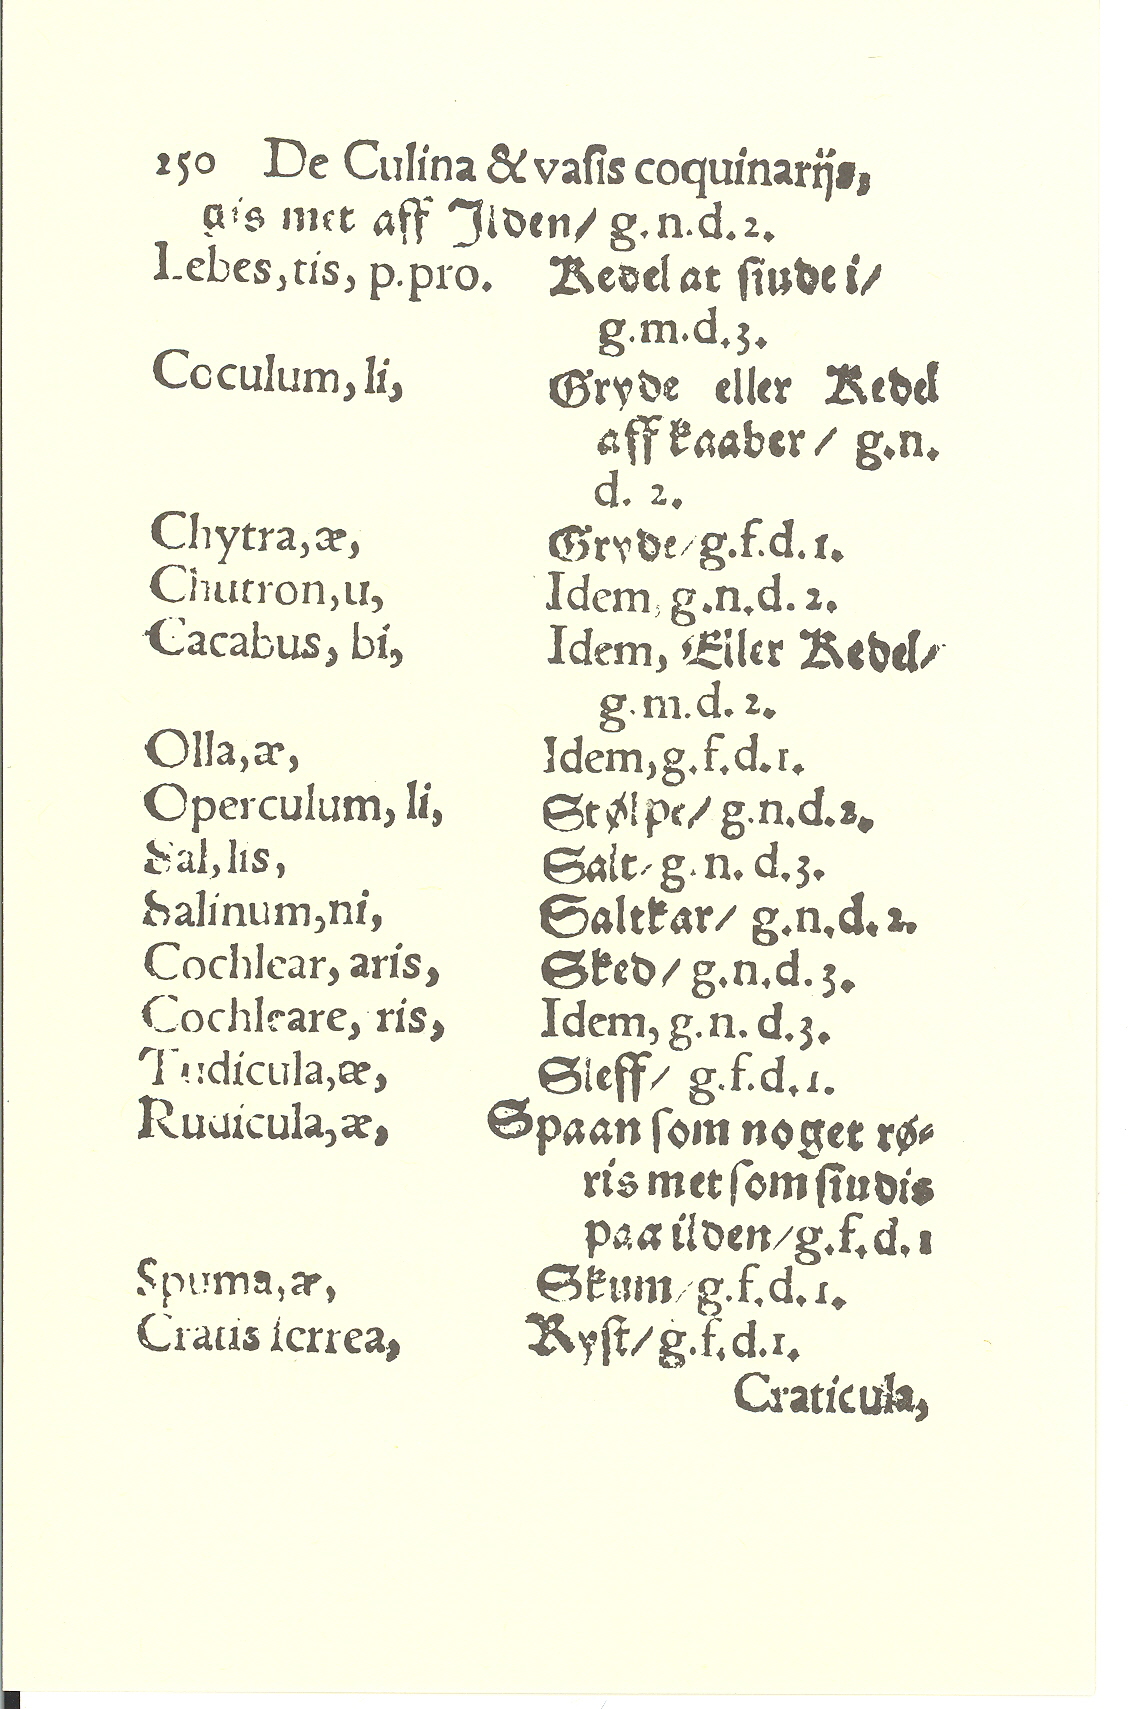 250 De Culina & vasis coquinarijs,
gis met aff Ilden/ g.n.d.2.
Lebes, tis, p.pro. Kedel at siude i/
g.m.d.3.
Coculum, li, Gryde eller Kedel
aff kaaber/ g.n.
d. 2.
Chytra, æ, Gryde/ g.f.d.1.
Chutron, u, Idem, g.n.d.2.
Cacabus, bi, Idem, Eller Kedel/
g.m.d.2.
Olla, æ, Idem, g.f.d.1.
Operculum, li, Stølpe/ g.n.d.2.
Sal, lis, Salt/ g.n.d.3.
Salinum, ni, Saltkar/ g.n.d.2.
Cochlear, aris, Sked/ g.n.d.3.
Cochleare, ris, Idem, g.n.d.3.
Tudicula, æ, Sleff/ g.f.d.1.
Rudicula, æ, Spaan som noget rø-
ris met som siudis
paa ilden/ g.f.d.1
Spuma, æ, Skum/ g.f.d.1.
Cratis ferrea, Ryst/ g.f.d.1.
Craticula,